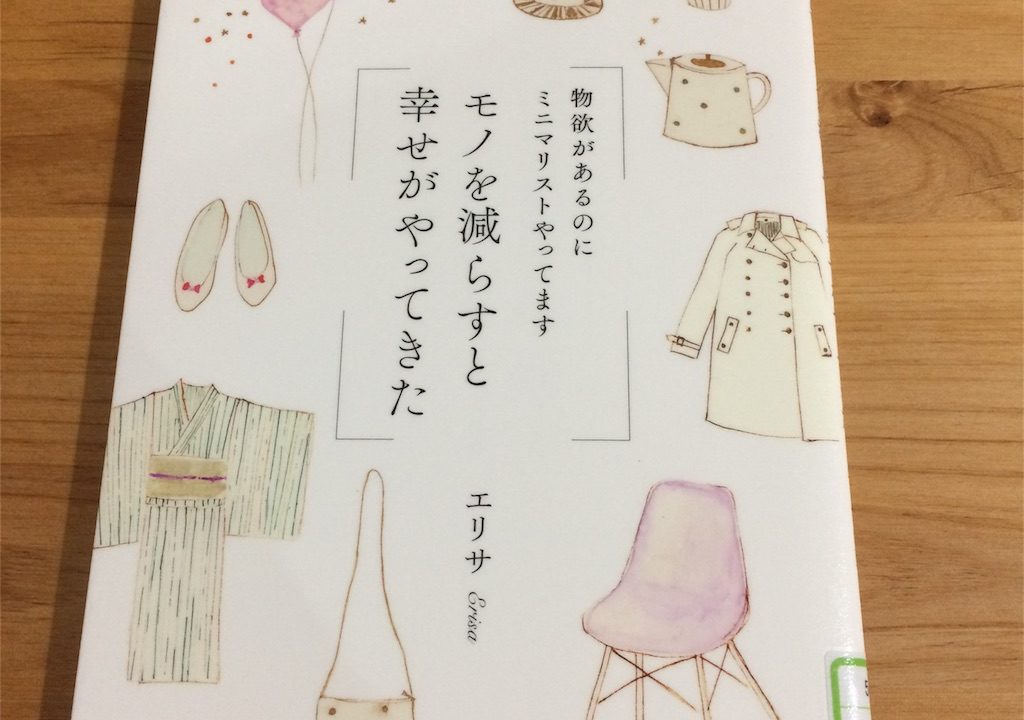 物欲があるのに
ミニマリストやってます
モノを減らすと
幸せがやってきた
エリサ Erisa